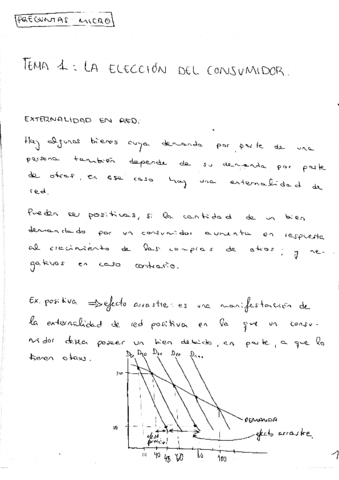 PREGUNTAS MICRO
TEMA 1: LA ELECCIÓN DEL CONSUMIDOR.
EXTERNALIDAD EN RED.
Hay algunos bienes cuya demanda por parte de una
persona también depende de su demanda por parte
de otras, en ese caso hay una externalidad de
red.
Pueden ser positivas, si la cantidad de un bien
demandado por un consumidor aumenta en respuesta
al crecimiento de las compras de otros; y ne-
gativas en caso contrario.
Ex. positiva ⇒ efecto arrastre: es una manifestación de
la externalidad de red positiva en la que un consu-
midor desea poseer un bien debido, en parte, a que lo
tienen otros.
DEMANDA
efecto arrastre
40 48 60 80 100
1